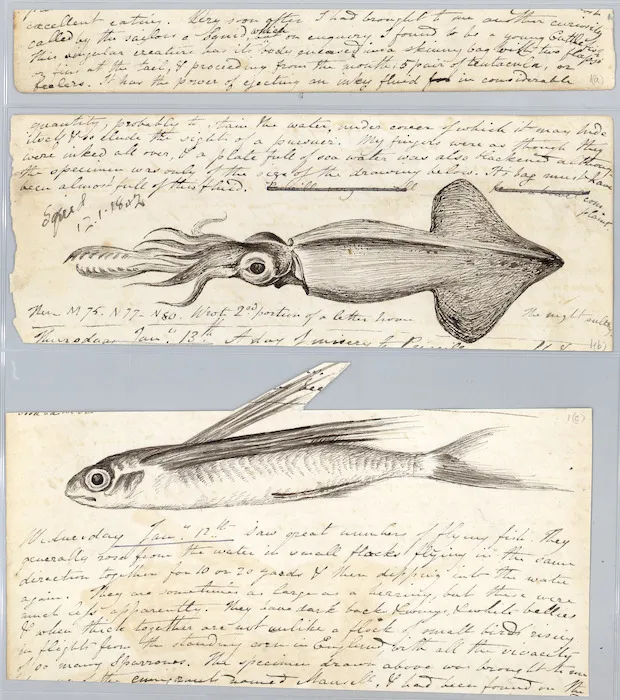 excellent eating. Very soon after I had brought to me another curiosity
called by the sailors a Squid, which on enquiry I found to be a young Cuttlefish
This singular creature has its body encased in a skinny bag with two flaps
or fins at the tail, & proceeding from the mouth, 5 pair of tentacula, or
feelers. It has the power of ejecting an inky fluid in considerable
1(a)
quantity, probably to stain the water, under cover of which it may hide
itself & so elude the sight of a pursuer. My fingers were as though they
were inked all over, & a plate full of sea water was also blackened although
the specimen was only of the size of the drawing below. Its bag must have
been almost full of this fluid.
bowel com
plaint
Squid
1. 1802
Ther M 75. N 77. N 80. Wrote 2nd portion of a letter home
The night sultry
Thursday Jany 13th A day of misery to
1(b)
1(c)
Wednesday Jany 12th Saw great numbers of flying fish. They
generally rose from the water in small flocks flying in the same
direction together for 10 or 20 yards & then dipping into the water
again. They are sometimes as large as a herring, but these were
much less apparently. They have dark back & wings, & white bellies
& when thick together are not unlike a flock of small birds rising
in flights from the standing corn in England with all the vivacity
of so many Sparrows. The specimen drawn above was brought to me
of the emigrants named Mansell, & had been found on the